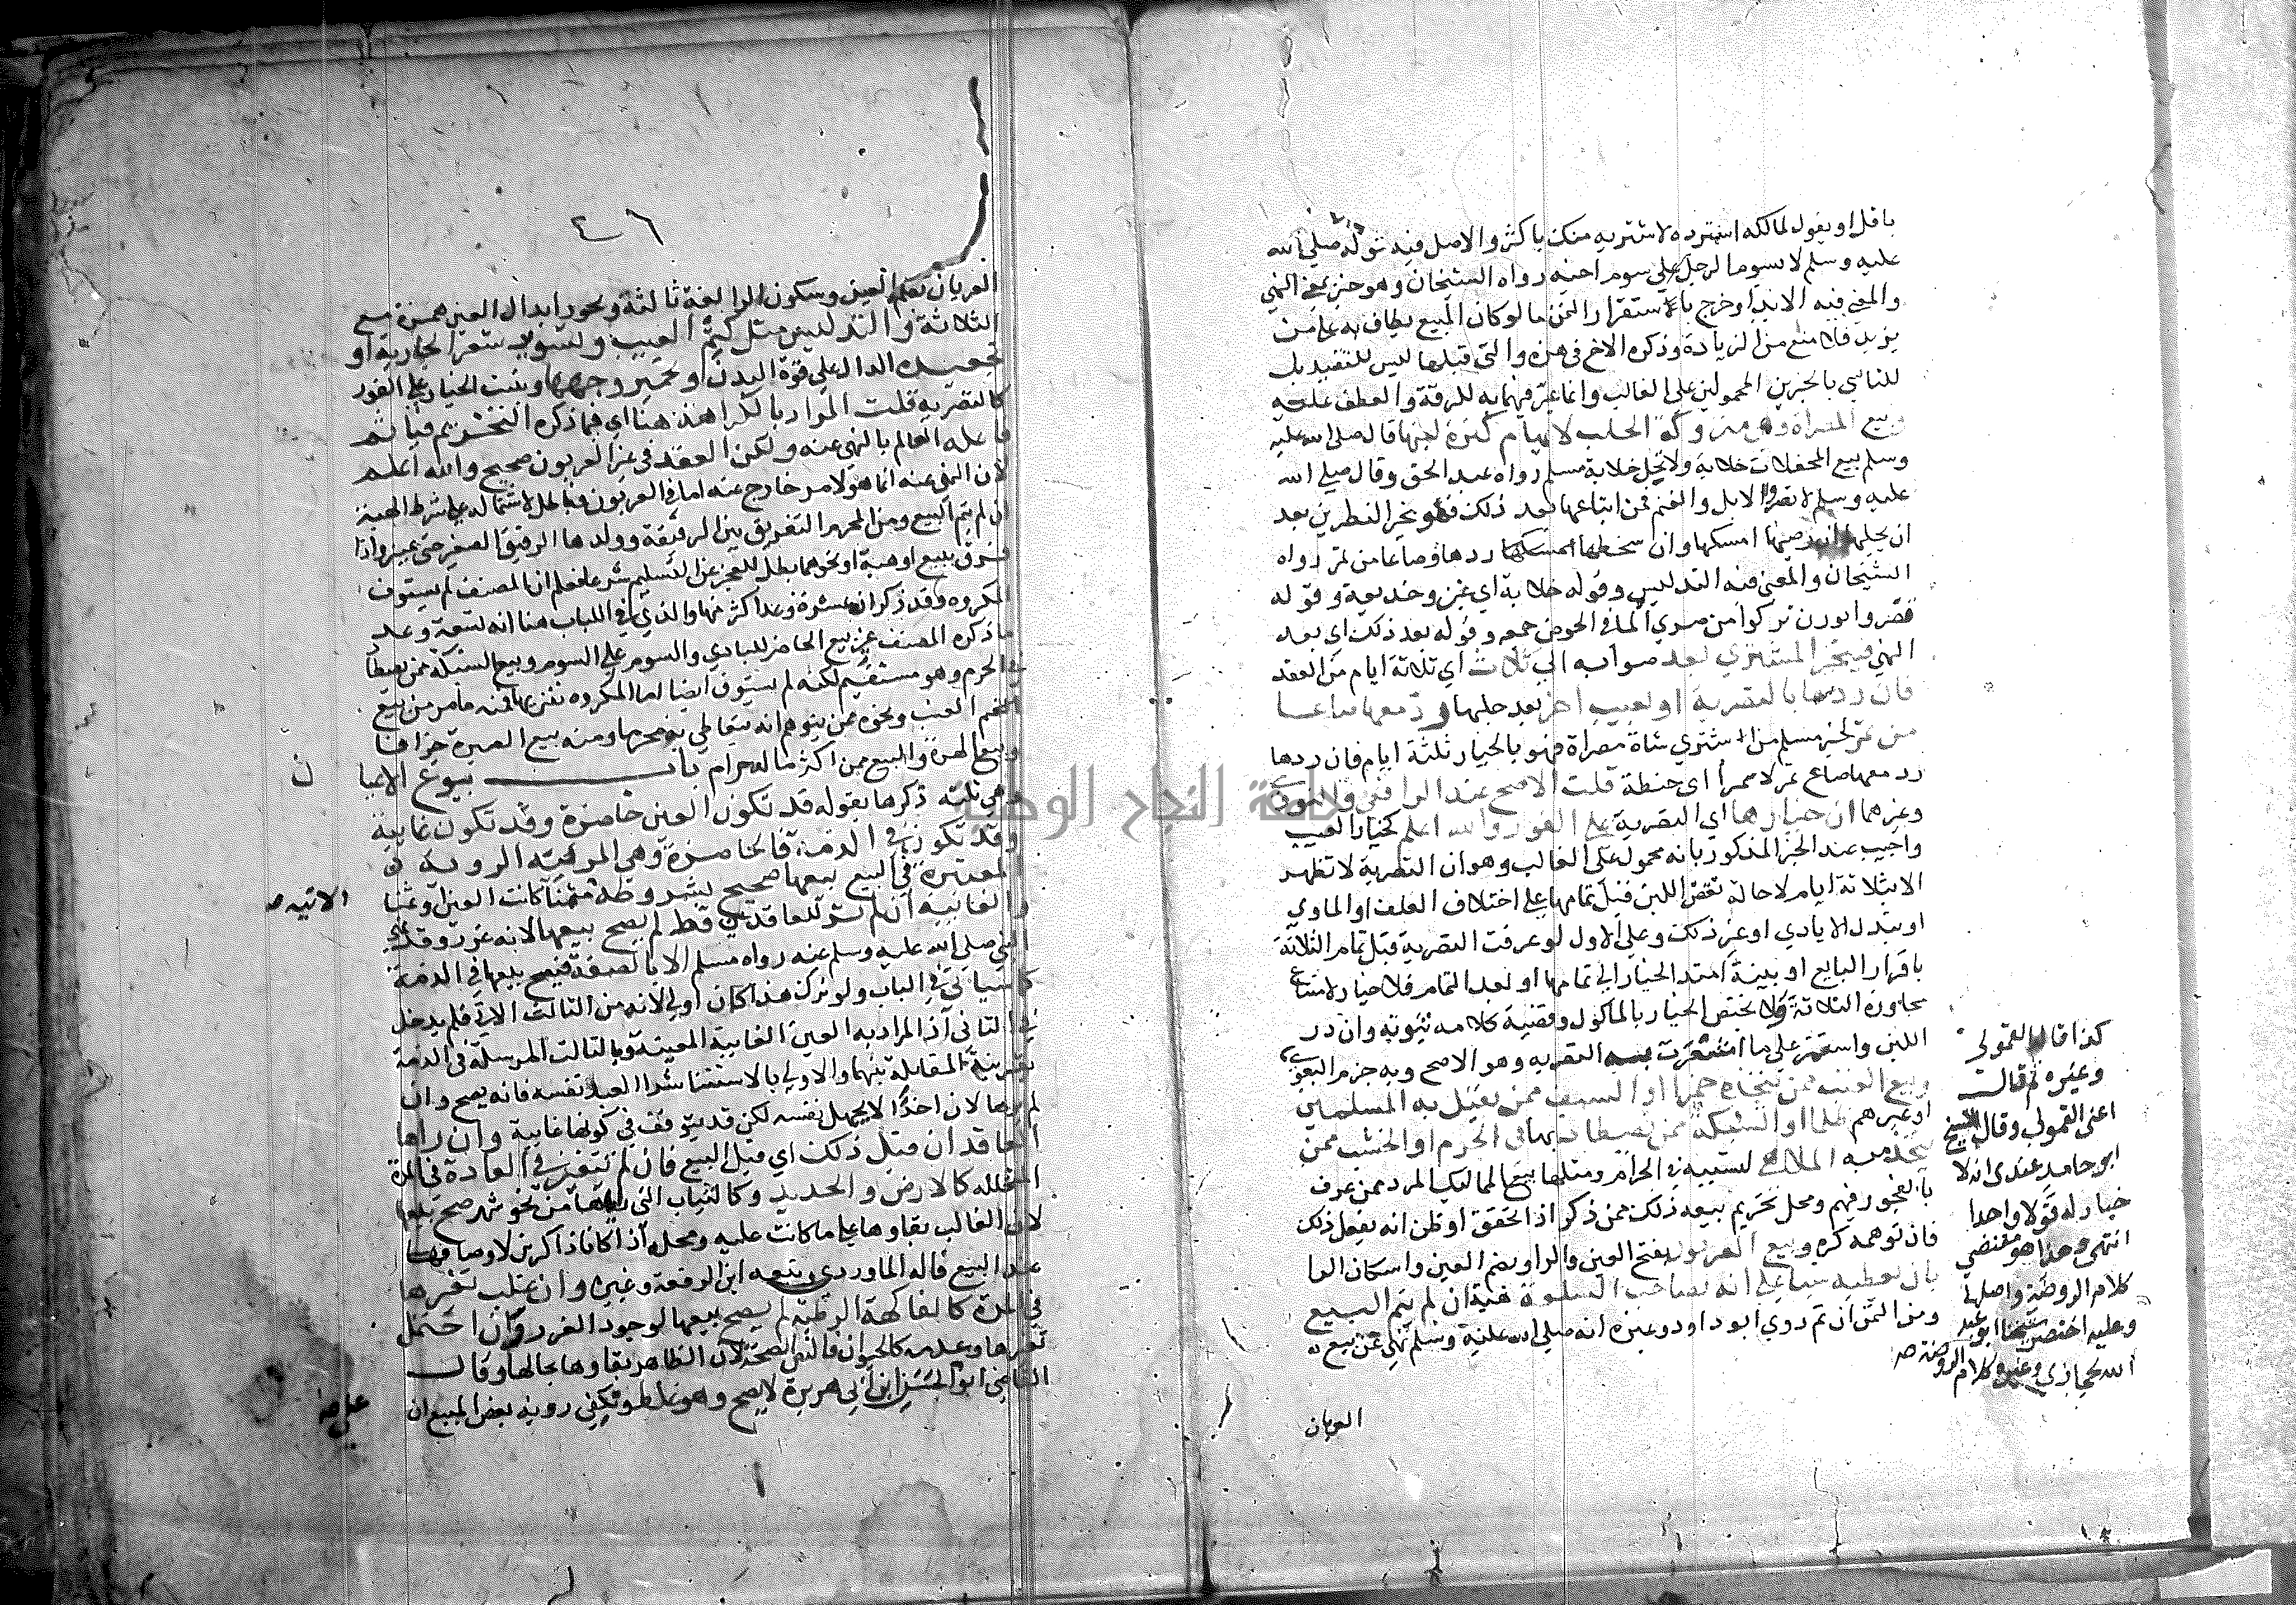 باقل او يقول لمالكه استرده لاشتريه منك باكثر والاصل فيه قوله صلى الله
عليه وسلم لا يسوم الرجل على سوم اخيه رواه الشيخان وهو خبر بمعنى النهي
والمعنى فيه الايذا وخرج باستقرار الثمن ما لو كان المبيع يطاف به على من
يزيد فلا منع من الزيادة وذكره الاخ في هذه والتي قبلها ليس للتقييد بل
للتاسي بالخبرين المحمولين على الغالب وانما عبر فيهما به للرقة والعطف عليه
وبيع المصراة وهي متروكة الحلب لايهام كثرة لبنها قال صلى الله عليه
وسلم بيع المحفلات خلابة ولا تحل خلابة مسلم رواه عبد الحق وقال صلى الله
عليه وسلم لا تصروا الابل والغنم فمن ابتاعها بعد ذلك فهو بخير النظرين بعد
ان يحلبها ان رضيها امسكها وان سخطها ردها وصاعا من تمر رواه
الشيخان والمعنى فيه التدليس وقوله خلابة اي غبن وخديعة وقوله
تصروا بوزن تزكوا من صرى الما في الحوض جمعه وقوله بعد ذلك اي بعد
النهي فيتخير المشتري بعد صوابه الى ثلاث اي ثلاثة ايام من العقد
فان ردها بالتصرية او بعيب اخر بعد حلبها رد معها صاعا
من تمر لخبر مسلم من اشترى شاة مصراة فهو بالخيار ثلثة ايام فان ردها
رد معها صاع تمر لا سمرا اي حنطة قلت الاصح عند الرافعي والنووي
وغيرهما ان خيارها اي التصرية على الفور والله اعلم كخيار العيب
واجيب عند الخبر المذكور بانه محمول على الغالب وهو ان التصرية لا تظهر
الا بثلاثة ايام لاحالة نقص اللبن قبل تمامها على اختلاف العلف او الماوى
او تبدل الايادي او غير ذلك وعلى الاول لو عرفت التصرية قبل تمام الثلاثة
باقرار البايع او بينة امتد الخيار الى تمامها او بعد التمام فلا خيار لامتناع
مجاوزة الثلاثة ولا يختص الخيار بالماكول وقضية كلامه ثبوته وان در
اللبن واستمر على ما اشعرت به التصرية وهو الاصح وبه جزم البغوي
وبيع العنب ممن يتخذه خمرا او السيف ممن يقتل به المسلمين
او غيرهم ظلما او الشبكة ممن يصطاد بها في الحرم او الخشب ممن
يتخذ منه الملاهي لتسببه في الحرام ومثلها بيع المماليك المرد ممن عرف
بالفجور فيهم ومحل تحريم بيعه ذلك ممن ذكر اذا تحقق او ظن انه يفعل ذلك
فان توهمه كره وبيع العربون بفتح العين والراء وبضم العين واسكان الرا
بان يعطيه شيئا على انه لصاحب السلعة هبة ان لم يتم البيع
ومن الثمن ان تم روى ابو داود وغيره انه صلى الله عليه وسلم نهى عن بيع
العربان
كذا قال القمولى
وغيره ثم قال
اعني القمولي وقال الشيخ
ابو حامد عندى انه لا
خيار له قولا واحدا
انتهى وهذا هو مقتضى
كلام الروضة واصلها
وعليه اختصر شيخنا ابو عبد
الله حجازي وغيره كلام الروضة صح
٤٦
العربان بضم العين وسكون الرا لغة ثالثة ويجوز ابدال العين همزة مع
الثلاثة والتدليس مثل كتم العيب وتسويد شعر الجارية او
تجعيده الدال على قوة البدن او تحمير وجهها ويثبت الخيار على الفور
كالتصرية قلت المراد بالكراهة هنا اي فيما ذكره التحريم فياثم
فاعله العالم بالنهي عنه ولكن العقد في غير العربون صحيح والله اعلم
لان النهي عنه انما هو لامر خارج عنه اما في العربون فباطل لاشتماله على شرط الهبة
ان لم يتم البيع ومن المحرم التفريق بين الرقيقة وولدها الرقيق الصغير حتى يميز واذا
فرق ببيع او هبة او نحوهما بطل للعجز عن التسليم شرعا فعلم ان المصنف لم يستوف
المكروه وقد ذكر انه عشرة وعد اكثر منها والذي في اللباب هنا انه تسعة وعد
ما ذكره المصنف غير بيع الحاضر للبادي والسوم على السوم وبيع الشبكة ممن يصطاد
في الحرم وهو مستقيم لكنه لم يستوف ايضا اما المكروه تنزيها فمنه ما مر من بيع
العنب ونحوه ممن يتوهم انه يتعاطى به محرما ومنه بيع الصبرة جزافا
وبيع الهرة والبيع ممن اكثر ماله حرام باب بيوع الاعيان
وهي ثلثة ذكرها بقوله قد تكون العين حاضرة وقد تكون غايبة
وقد تكون في الذمة فالحاضرة وهي المرئية الروية
المعتبرة في البيع بيعها صحيح بشروطه مثمنا كانت العين او ثمنا الاتيه صح
والغايبة ان لم تر للعاقدين قط لم يصح بيعها لانه غرر وقد نهى
النبي صلى الله عليه وسلم عنه رواه مسلم الا بالصفة فيصح بيعها في الذمة
كما سياتي في الباب ولو ترك هذا كان اولى لانه من الثالث الاتي فلم يدخل
في الثاني اذ المراد به العين الغايبة المعينة وبالثالث المرسلة في الذمة
بقرينة المقابلة بينهما والاولى بالاستثنا شرا العبد نفسه فانه يصح وان
لم يرها لان احدا لا يجهل نفسه لكن قد يتوقف في كونها غايبة وان راها
العاقدان قبل ذلك اي قبل البيع فان لم تتغير في العادة في المدة
المتخللة كالارض والحديد وكالثياب التي راها من نحو شهر صح بيعها
لان الغالب بقاوها على ما كانت عليه ومحله اذا كانا ذاكرين لاوصافها
عند البيع قاله الماوردي وتبعه ابن الرفعة وغيره وان غلب تغيرها
في المدة كالفاكهة الرطبة لم يصح بيعها لوجود الغرر وان احتمل
تغيرها وعدمه كالحيوان فالنص الصحة لان الظاهر بقاوها بحالها وقال
القاضي ابو الحسين ابن ابي هريرة لا يصح وهو غلط ويكفي روية بعض المبيع ان